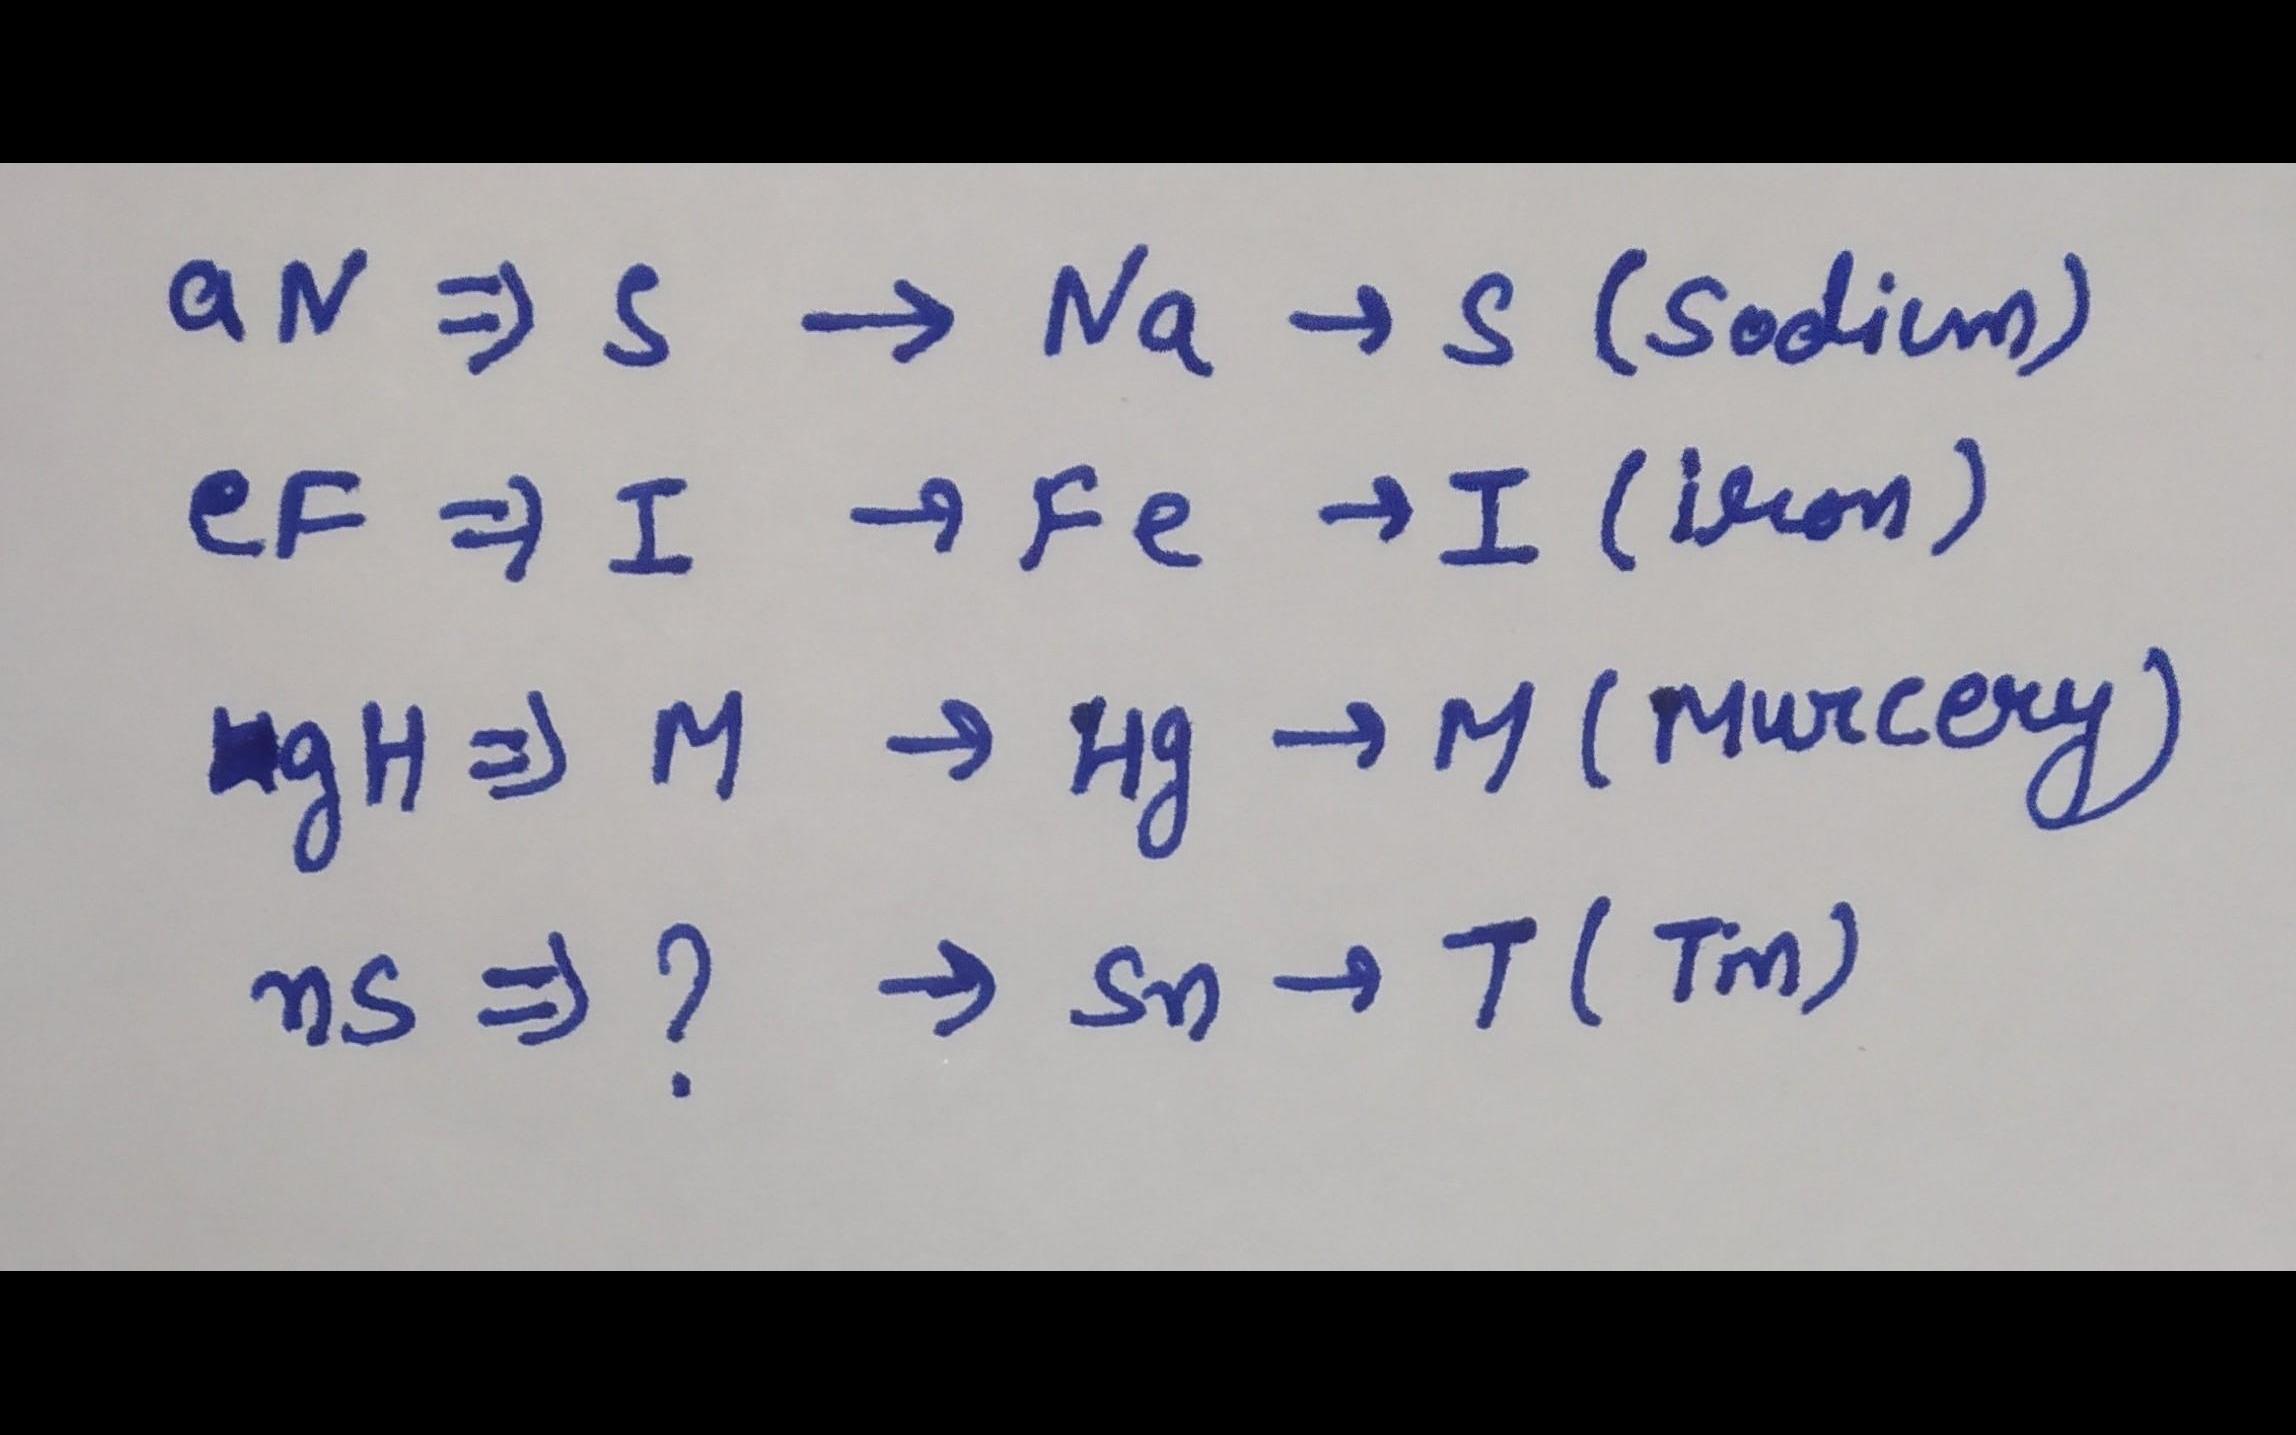 aN => S → Na → S (Sodium)
eF => I → Fe → I (iron)
gH => M → Hg → M (Murcery)
nS => ? → Sn → T (Tin)